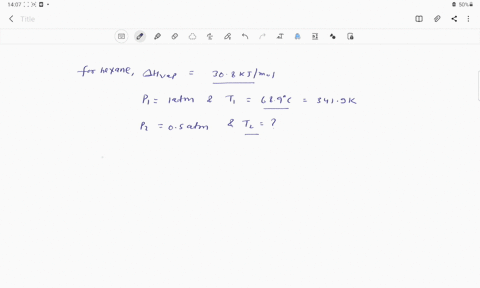 14:07
50%
Title
for hexane, ΔHvap = 30.8 KJ/mol
P1 = 1atm & T1 = 68.9°C = 341.9K
P2 = 0.5 atm & T2 = ?